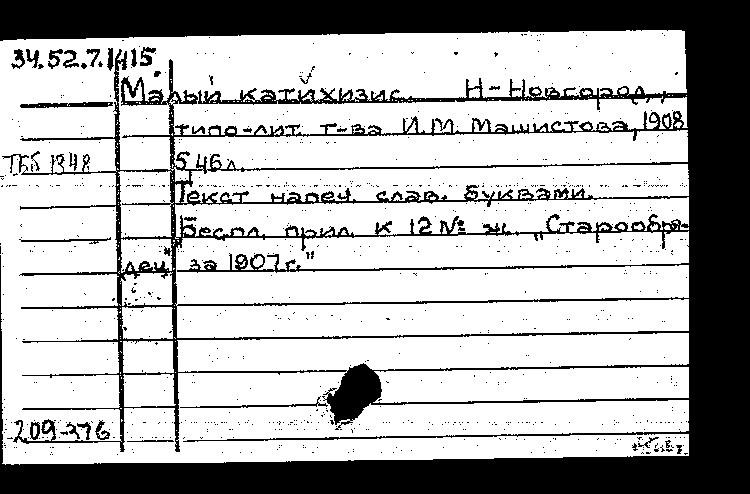 34.52.7.1415
Малый катихизис. Н-Новгород,
типо-лит. т-ва И.М. Машистова, 1908
ТББ 1348 5,46л.
Текст напеч. слав. буквами.
Беспл. прил. к 12 № ж. „Старообря-
дец" за 1907г."
209-376